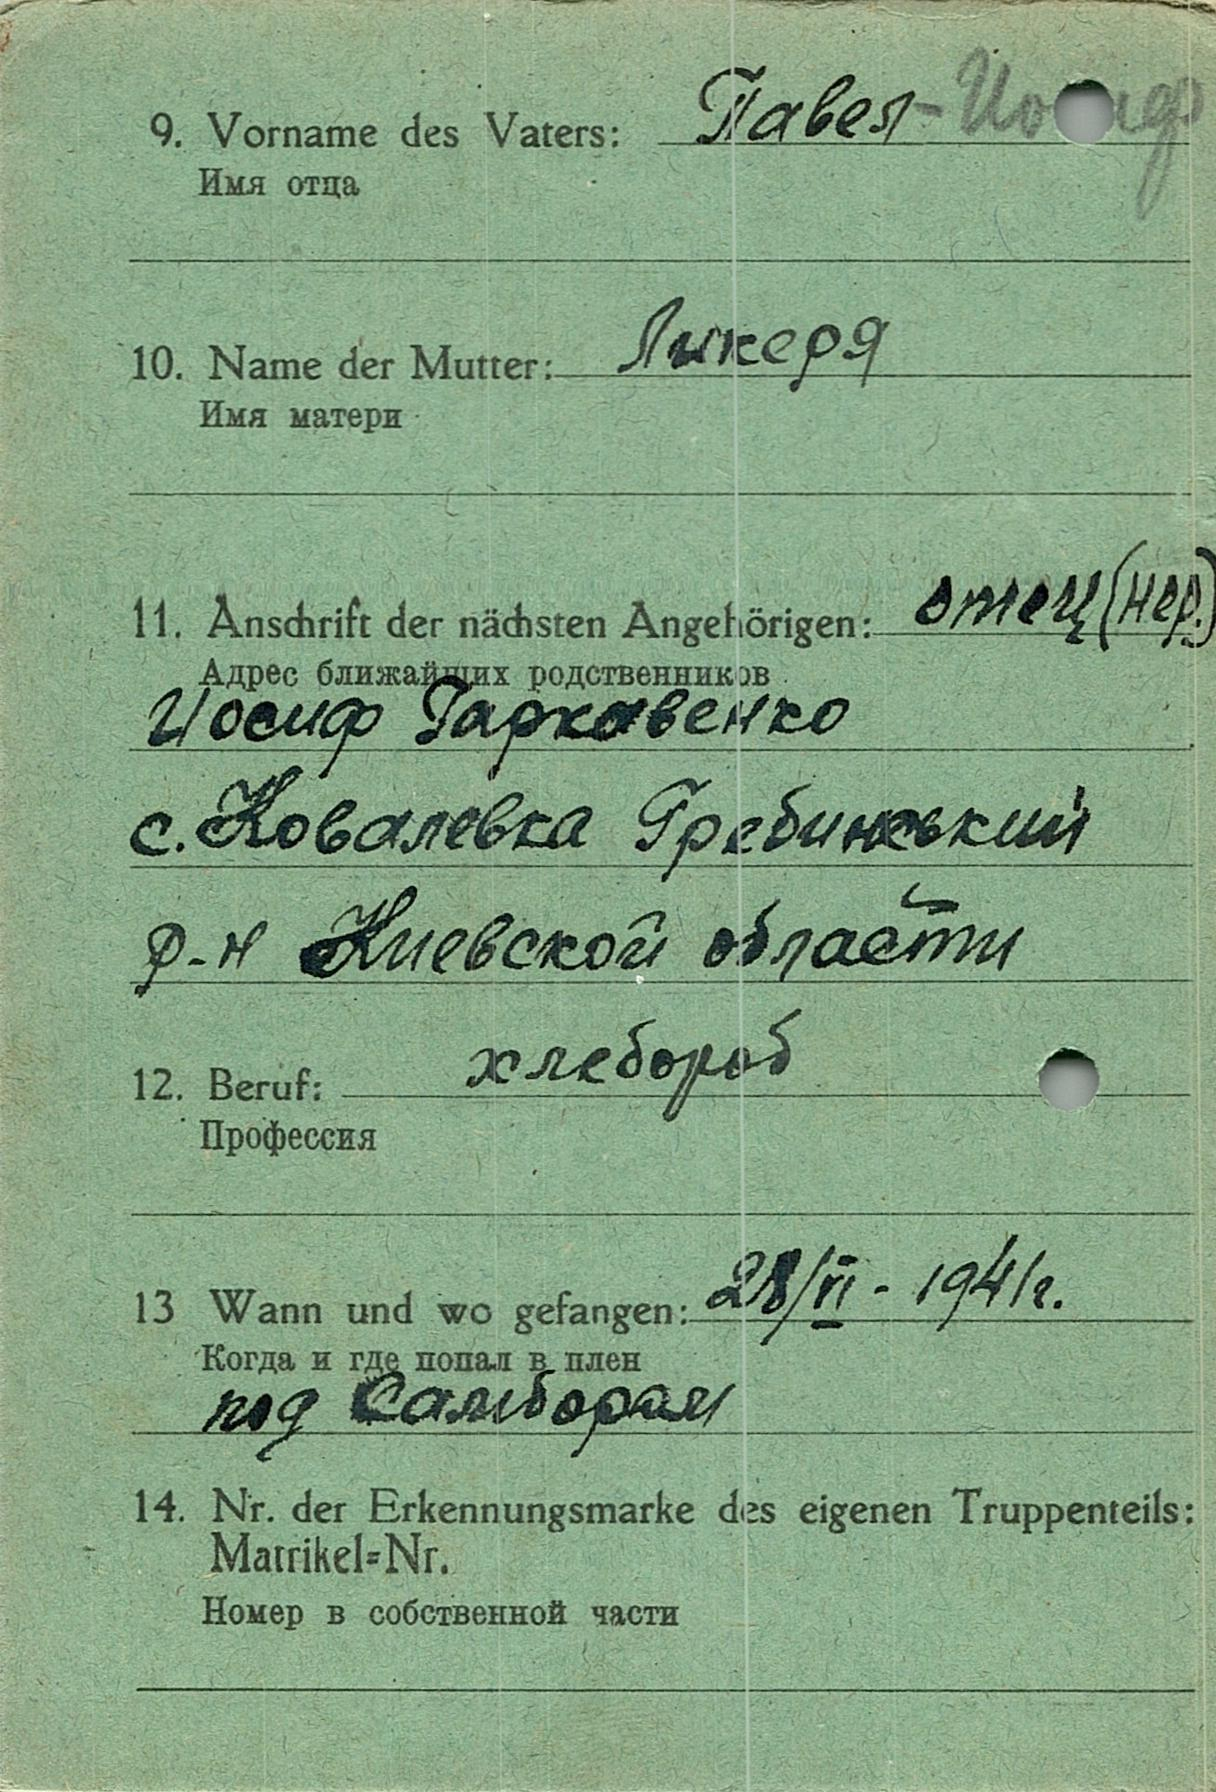 9. Vorname des Vaters: Павел - Иосиф
Имя отца
10. Name der Mutter: Ликеря
Имя матери
11. Anschrift der nächsten Angehörigen: отец (нер.)
Адрес ближайших родственников
Иосиф Гаркавенко
с. Ковалевка Гребинський
р-н Киевской области
12. Beruf: хлебороб
Профессия
13 Wann und wo gefangen: 28/VI - 1941 г.
Когда и где попал в плен
под Самборам
14. Nr. der Erkennungsmarke des eigenen Truppenteils:
Matrikel=Nr.
Номер в собственной части